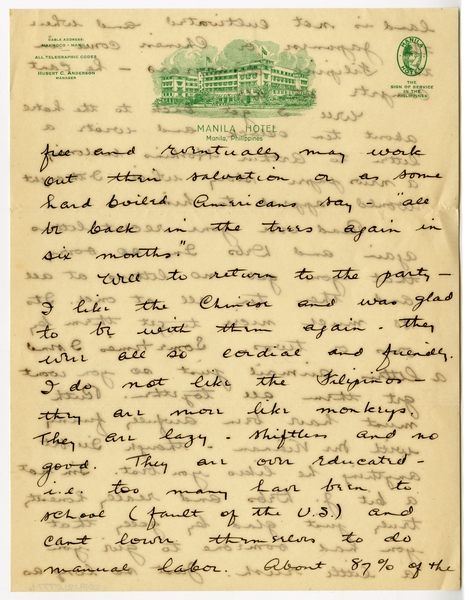 CABLE ADDRESS:
MANHOCO - MANILA
ALL TELEGRAPHIC CODES
HUBERT C. ANDERSON
MANAGER
MANILA HOTEL
Manila, Philippines
MANILA
HOTEL
THE
SIGN OF SERVICE
IN THE
PHILIPPINES
free and eventually may work
out their salvation or as some
hard boiled Americans say - "all
be back in the trees again in
six months."
Well to return to the party -
I like the Chinese and was glad
to be with them again - they
were all so cordial and friendly.
I do not like the Filipinos -
they are more like monkeys.
They are lazy - shiftless and no
good. They are over educated -
i.e. too many have been to
school (fault of the U.S.) and
cant lower themselves to do
manual labor. About 87% of the